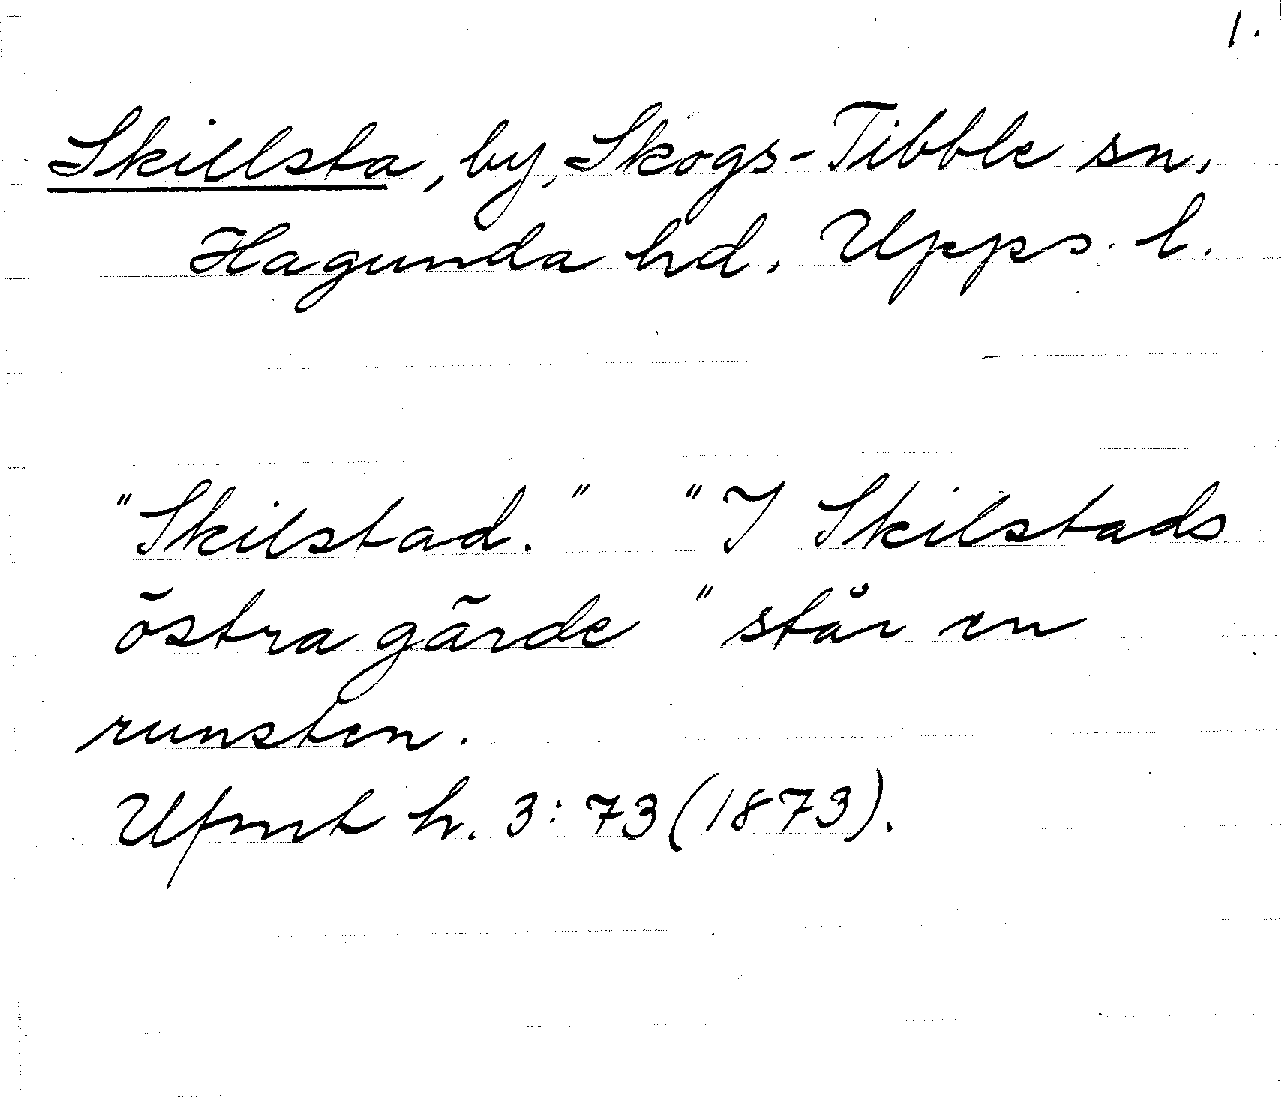 1.
Skillsta, by, Skogs-Tibble sn,
Hagunda hd, Upps. l.
"Skilstad." "I Skilstads
östra gärde" står en
runsten.
Ufmt h. 3:73 (1873).